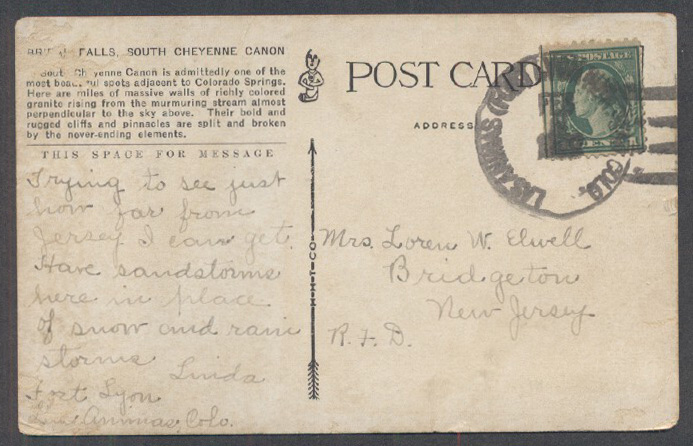 FALLS, SOUTH CHEYENNE CANON
South Cheyenne Canon is admittedly one of the
most beautiful spots adjacent to Colorado Springs.
Here are miles of massive walls of richly colored
granite rising from the murmuring stream almost
perpendicular to the sky above. Their bold and
rugged cliffs and pinnacles are split and broken
by the never-ending elements.
THIS SPACE FOR MESSAGE
Trying to see just
how far from
Jersey I can get.
Have sandstorms
here in place
of snow and rain
storms Linda
Fort Lyon
Las Animas, Colo.
H-H-T-CO
POST CARD
ADDRESS
LAS ANIMAS
COLO.
U.S. POSTAGE
Mrs. Loren W. Elwell
Bridgeton
New Jersey
R.F.D.